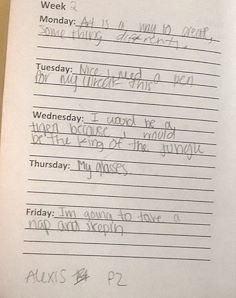 Week 2
Monday: Art is a way to create,
something different.
Tuesday: Nice I need a pen
for my this
Wednesday: I would be a
tigen because I would
be the king of the jungle
Thursday: My glasses
Friday: Im going to take a
nap and
ALEXIS P2